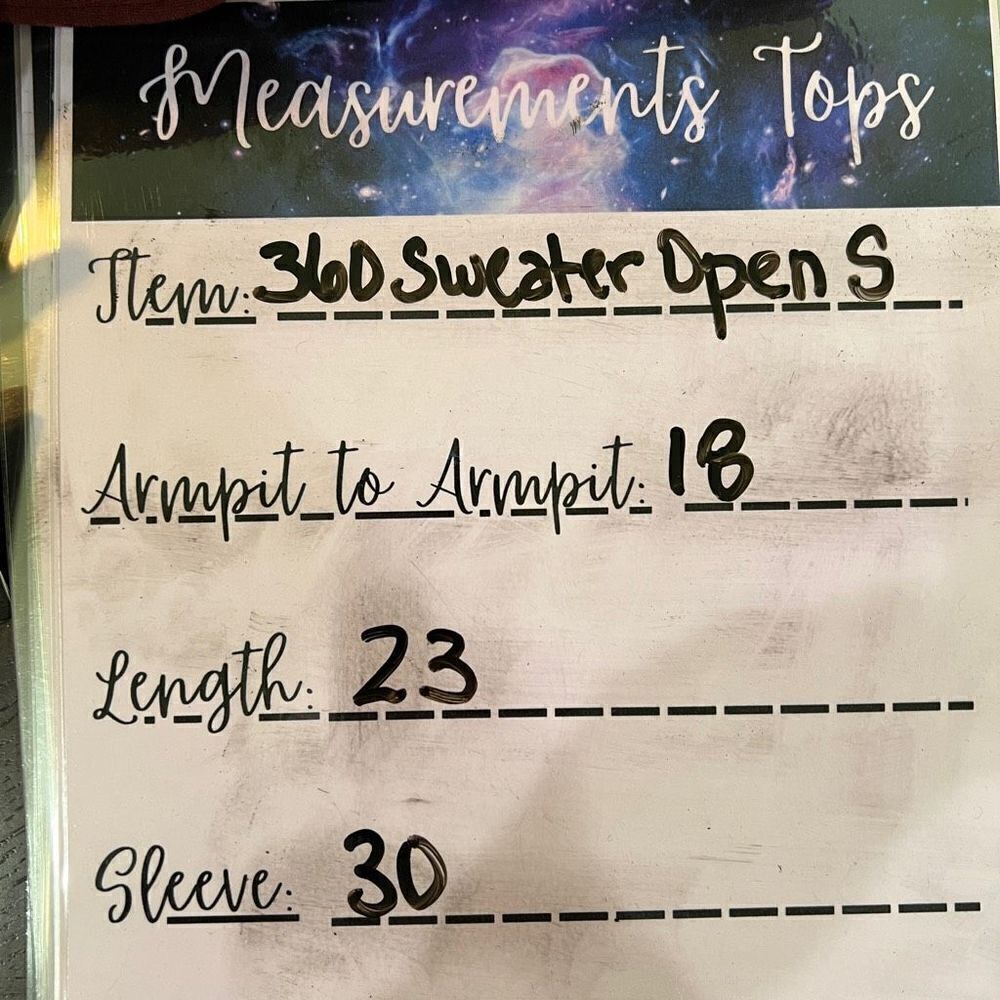 Measurements Tops
Item: 360 Sweater Open S
Armpit to Armpit: 18
Length: 23
Sleeve: 30